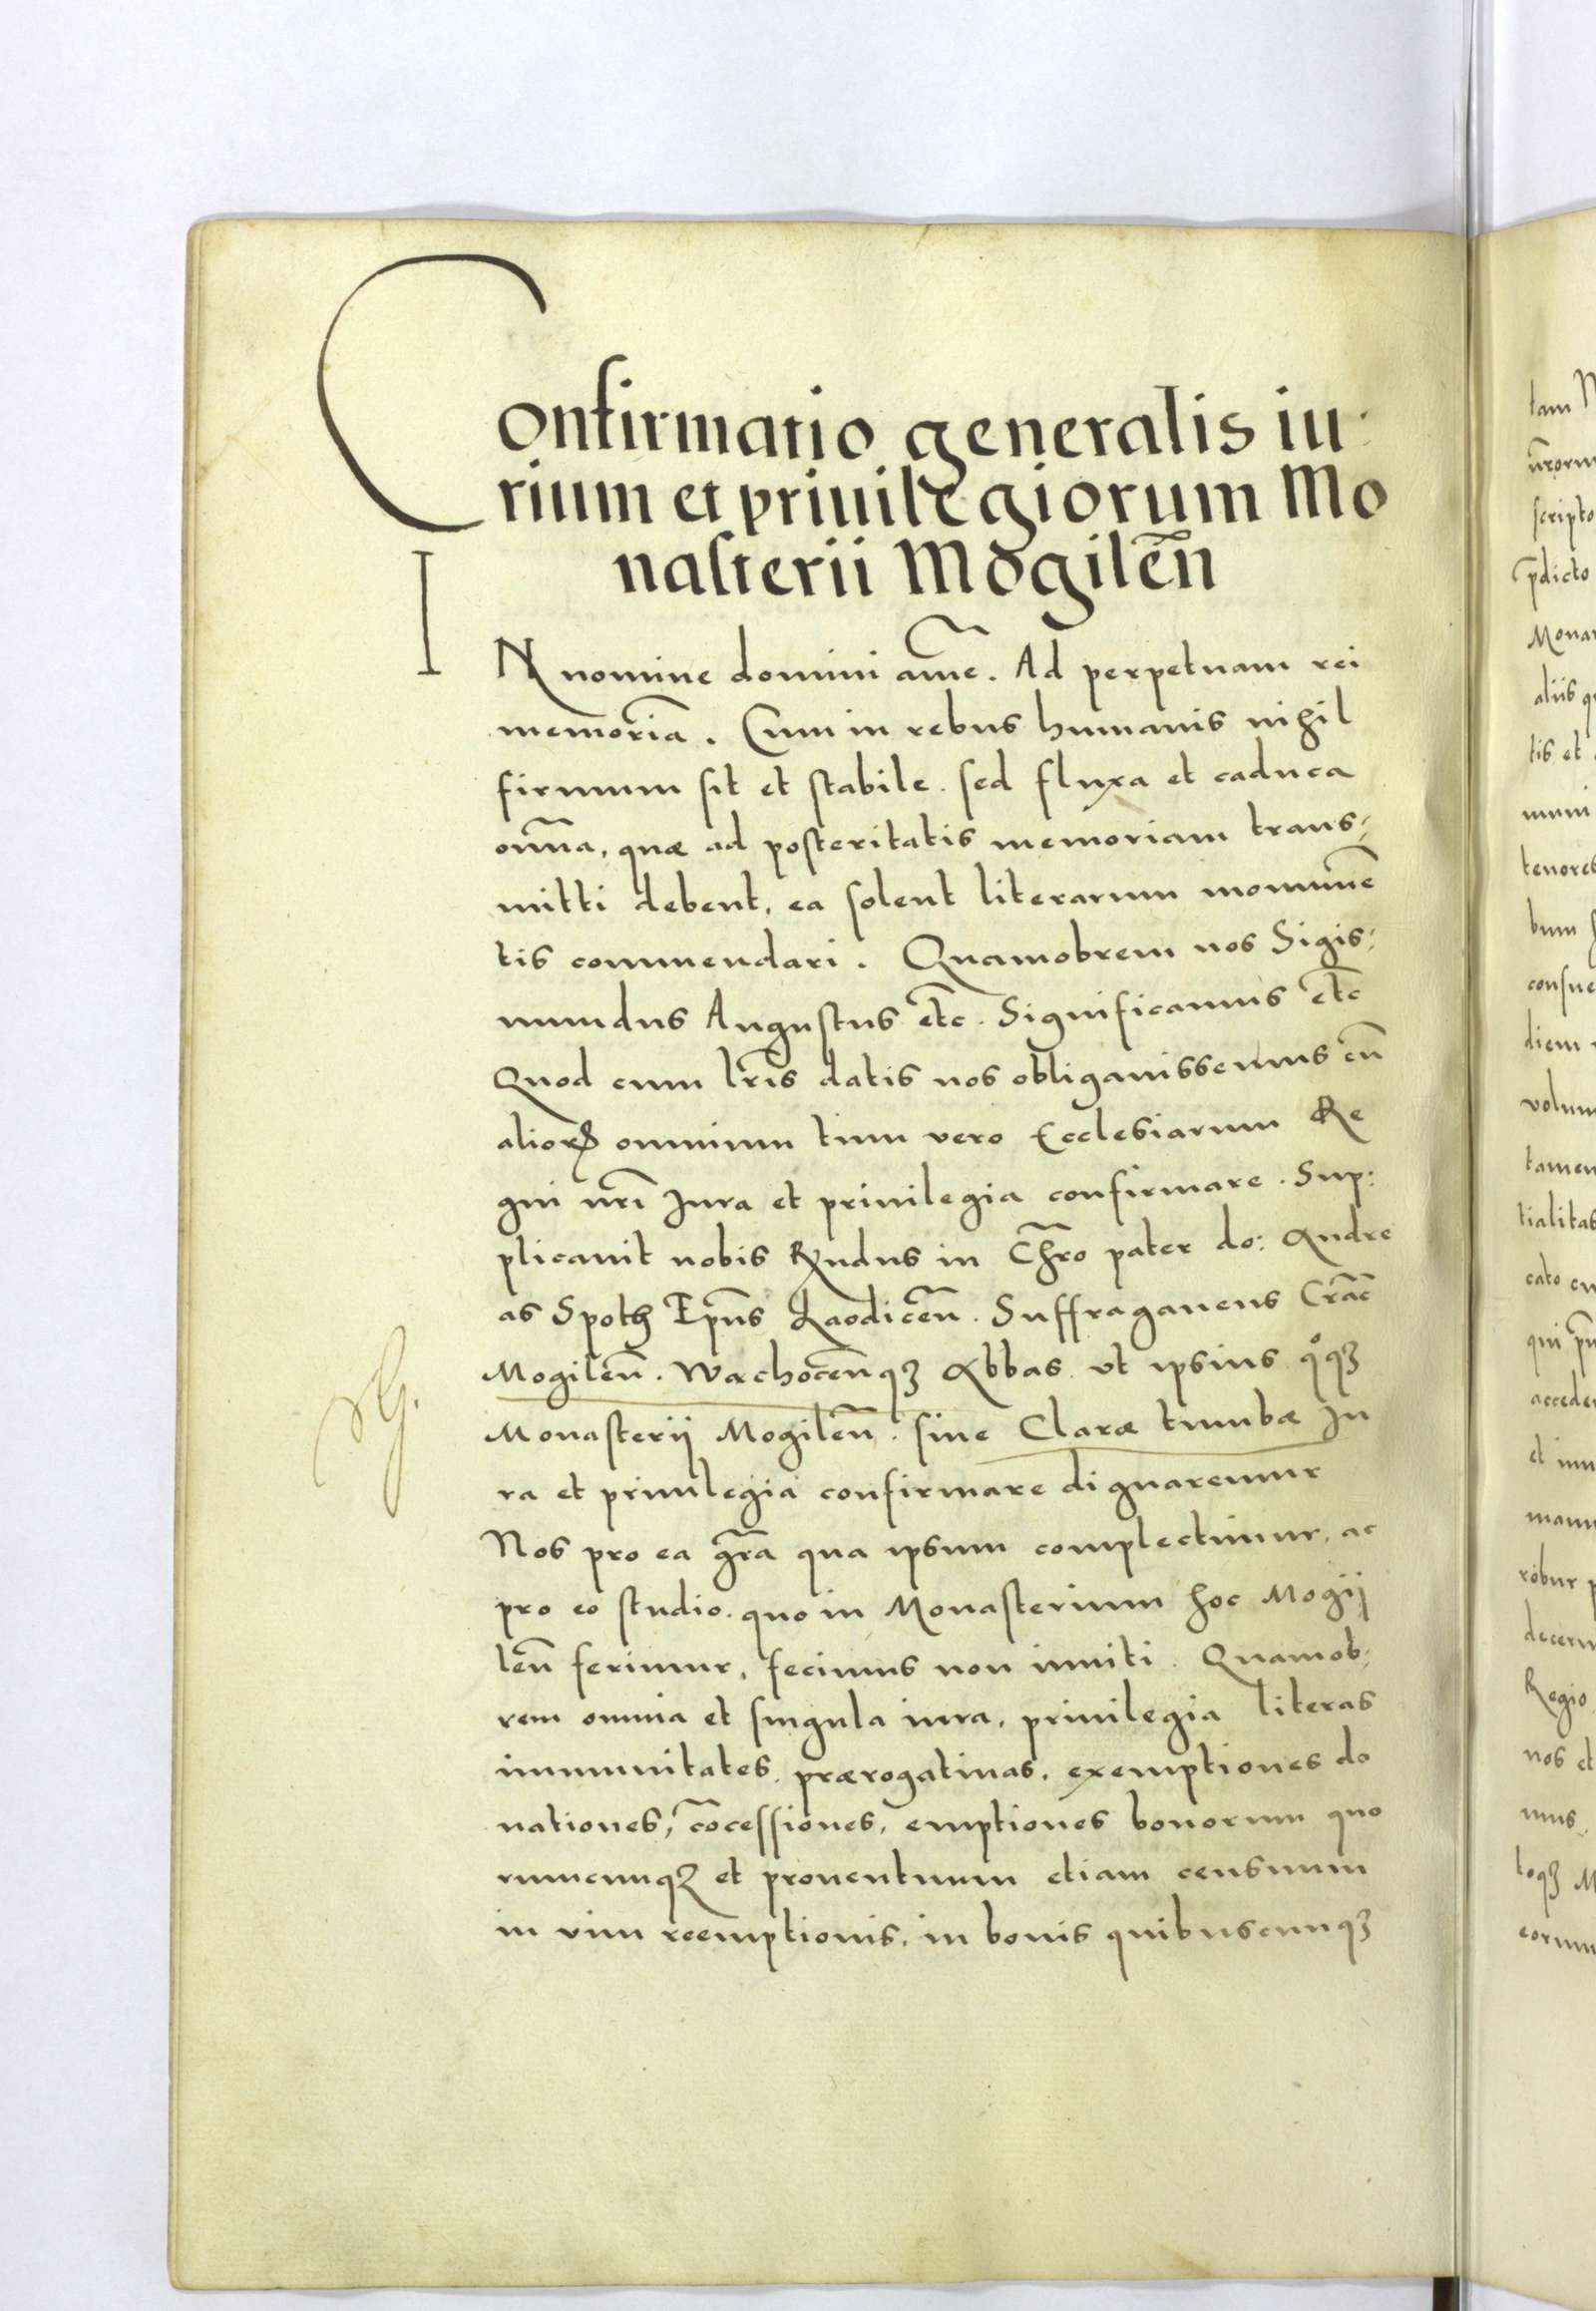 Confirmatio generalis iu:
rium et priuilegiorum Mo
nasterii Mogilen̄
IN nomine domini ame̅. Ad perpetuam rei
memoria̅. Cum in rebus humanis nihil
firmum sit et stabile. sed fluxa et caduca
om̅a, quæ ad posteritatis memoriam trans:
mitti debent, ea solent literarum monume̅
tis commendari. Quamobrem nos Sigis:
mundus Augustus et̅c. Significamus et̅c
Quod cum lr̅is datis nos obligauissemus cu̅
alioꝝ omnium tum vero Ecclesiarum Re
gni nr̅i Jura et priuilegia confirmare. Sup:
plicauit nobis Rn̅dus in Chr̅o pater do: Andre
as Spoth Ep̅us Laodicen̅. Suffraganeus Cra̅c
Mogilen̅. Wachocen̅qꝫ Abbas. vt ipsius qͦqꝫ
Monasterij Mogilen̅. siue Claræ tumbæ Ju
ra et priuilegia confirmare dignaremur
Nos pro ea gr̅a qua ipsum complectimur, ac
pro eo studio. quo in Monasterium hoc Mogij
len̅ ferimur, fecimus non inuiti. Quamob:
rem omnia et singula iura, priuilegia literas
immunitates, prærogatiuas, exemptiones do
nationes, co̅cessiones, emptiones bonorum quo
rumcunqꝫ et prouentuum etiam censuum
in vim reemptionis. in bonis quibuscunqꝫ
tam
scripto
p̅dicto
aliis
tis et
tenores
bum
diem
cato
et
Regio
nos et
mus